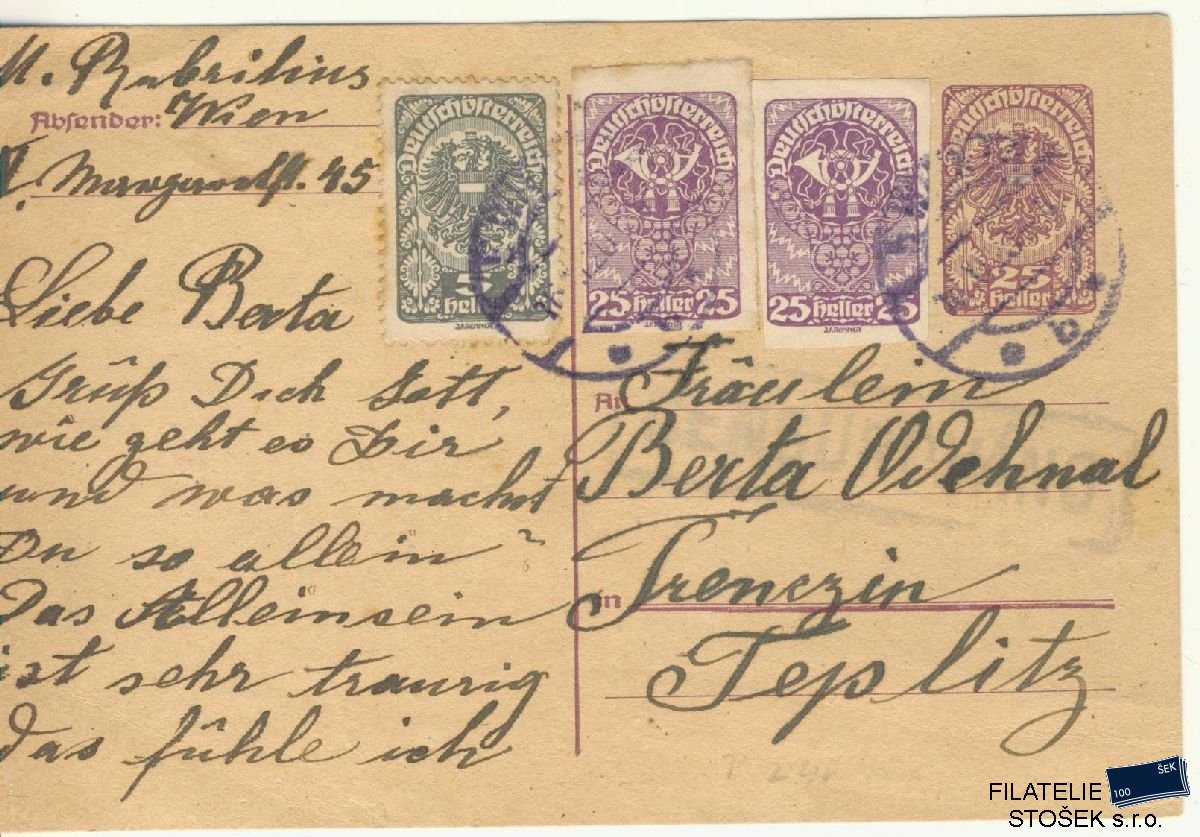 M. Rubritius
Absender: Wien
V. 45
Liebe Berta
Grüß Dich Gott,
wie geht es Dir
und was machst
Du so allein?
Das Alleinsein
ist sehr traurig
das fühle ich
Deutschösterreich
5
heller
Deutschösterreich
25 heller 25
Deutschösterreich
25 heller 25
Deutschösterreich
25
heller
WIEN
b
An Fräulein
Berta Odehnal
in Trenczin
Teplitz
100 ŠEK
FILATELIE
STOŠEK s.r.o.